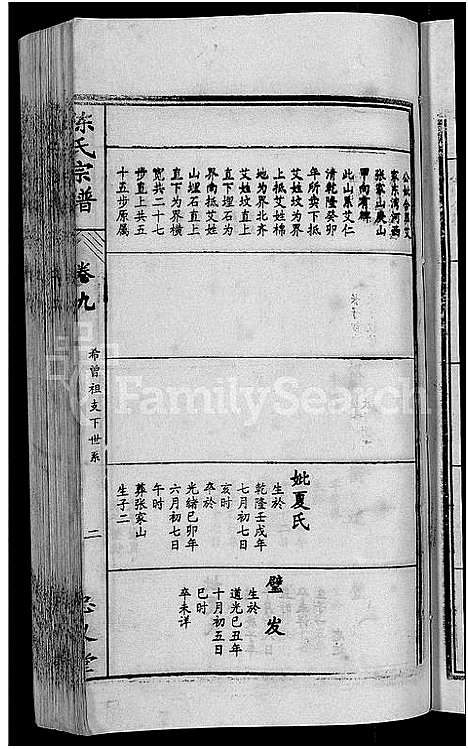 公妣合墓艾
家东湾河西
张家山庚山
甲向有碑
此山系艾仁
清乾隆癸卯
年所卖下抵
艾姓坟为界
上抵艾姓棉
地为界北齐
艾姓坟直上
直下埋石为
界南抵艾姓
山埋石直上
直下为界横
宽共二十七
步直上共五
十五步原属
妣夏氏
生於
乾隆壬戌年
七月初七日
亥时
卒於
光绪己卯年
六月初七日
午时
葬张家山
生子二
璧发
生於
道光己丑年
十月初五日
巳时
卒未详
陈氏宗谱
卷九
希曾祖支下世系
二
FamilySearch